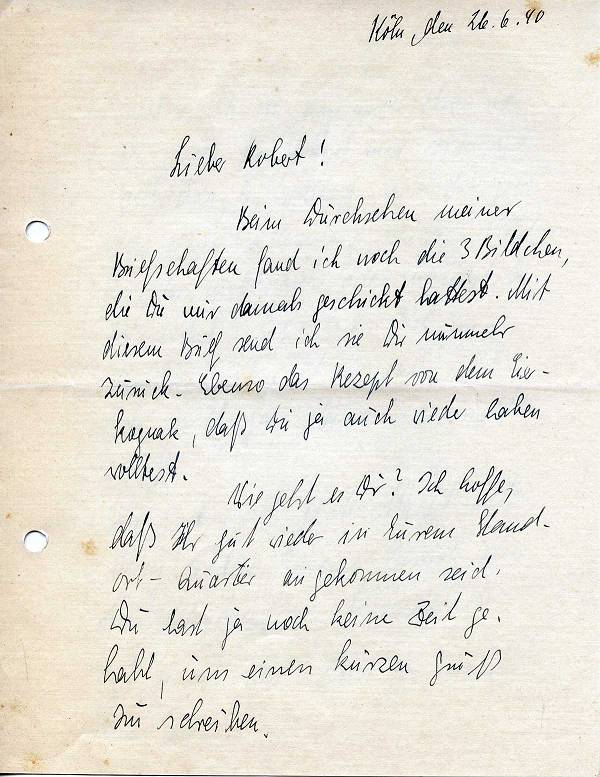 Köln, den 26.6.40
Lieber Robert!
Beim Durchsehen meiner
Briefschaften fand ich noch die 3 Bildchen,
die Du mir damals geschickt hattest. Mit
diesem Brief send ich sie Dir nunmehr
zurück. Ebenso das Rezept von dem Eier-
kognak, daß Du ja auch wieder haben
wolltest.
Wie geht es Dir? Ich hoffe,
daß Ihr gut wieder in Eurem Stand-
ort-Quartier angekommen seid.
Du hast ja noch keine Zeit ge-
habt, um einen kurzen Gruß
zu schreiben.